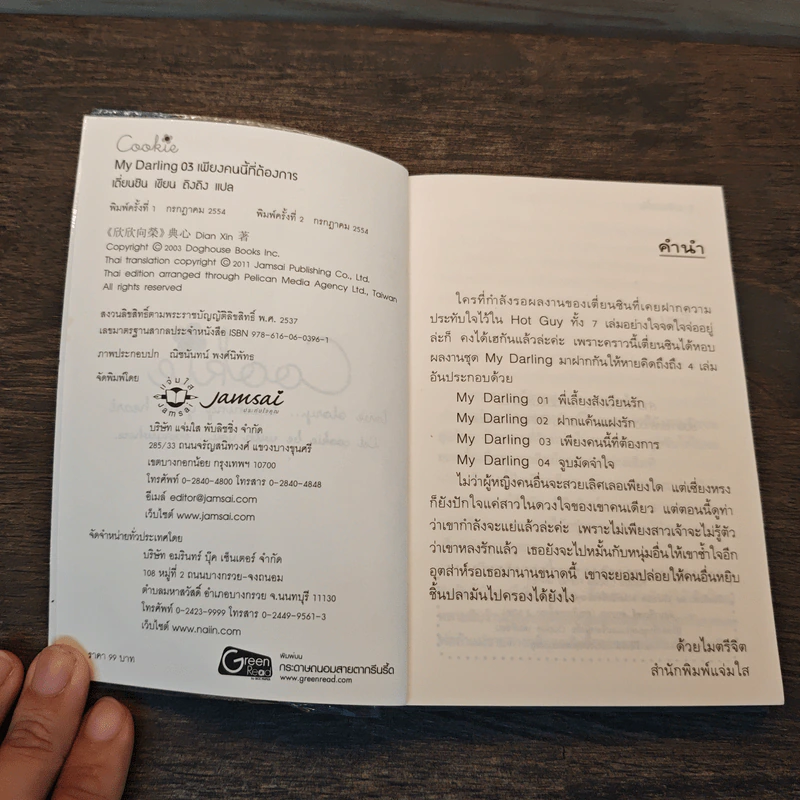 Cookie
My Darling 03 เพียงคนนี้ที่ต้องการ
เตี่ยนซิน เขียน ถิงถิง แปล
พิมพ์ครั้งที่ 1 กรกฎาคม 2554 พิมพ์ครั้งที่ 2 กรกฎาคม 2554
《欣欣向榮》典心 Dian Xin 著
Copyright © 2003 Doghouse Books Inc.
Thai translation copyright © 2011 Jamsai Publishing Co., Ltd.
Thai edition arranged through Pelican Media Agency Ltd., Taiwan
All rights reserved
สงวนลิขสิทธิ์ตามพระราชบัญญัติลิขสิทธิ์ พ.ศ. 2537
เลขมาตรฐานสากลประจำหนังสือ ISBN 978-616-06-0396-1
ภาพประกอบปก ณิชนันทน์ พงศ์นิพัทธ
จัดพิมพ์โดย
แจ่มใส
Jamsai
Jamsai
บริษัท แจ่มใส พับลิชชิ่ง จำกัด
285/33 ถนนจรัญสนิทวงศ์ แขวงบางขุนศรี
เขตบางกอกน้อย กรุงเทพฯ 10700
โทรศัพท์ 0-2840-4800 โทรสาร 0-2840-4848
อีเมล์ editor@jamsai.com
เว็บไซต์ www.jamsai.com
จัดจำหน่ายทั่วประเทศโดย
บริษัท อมรินทร์ บุ๊ค เซ็นเตอร์ จำกัด
108 หมู่ที่ 2 ถนนบางกรวย-จงถนอม
ตำบลมหาสวัสดิ์ อำเภอบางกรวย จ.นนทบุรี 11130
โทรศัพท์ 0-2423-9999 โทรสาร 0-2449-9561-3
เว็บไซต์ www.naiin.com
ราคา 99 บาท
Green Read
พิมพ์บน
กระดาษถนอมสายตากรีนรี้ด
www.greenread.com
คำนำ
ใครที่กำลังรอผลงานของเตี่ยนซินที่เคยฝากความ
ประทับใจไว้ใน Hot Guy ทั้ง 7 เล่มอย่างใจจดใจจ่ออยู่
ล่ะก็ คงได้เฮกันแล้วล่ะค่ะ เพราะคราวนี้เตี่ยนซินได้หอบ
ผลงานชุด My Darling มาฝากกันให้หายคิดถึงถึง 4 เล่ม
อันประกอบด้วย
My Darling 01 พี่เลี้ยงสังเวียนรัก
My Darling 02 ฝากแค้นแฝงรัก
My Darling 03 เพียงคนนี้ที่ต้องการ
My Darling 04 จูบมัดจำใจ
ไม่ว่าผู้หญิงคนอื่นจะสวยเลิศเลอเพียงใด แต่เซี่ยงหรง
ก็ยังปักใจแค่สาวในดวงใจของเขาคนเดียว แต่ตอนนี้ดูท่า
ว่าเขากำลังจะแย่แล้วล่ะค่ะ เพราะไม่เพียงสาวเจ้าจะไม่รู้ตัว
ว่าเขาหลงรักแล้ว เธอยังจะไปหมั้นกับหนุ่มอื่นให้เขาช้ำใจอีก
อุตส่าห์รอเธอมานานขนาดนี้ เขาจะยอมปล่อยให้คนอื่นหยิบ
ชิ้นปลามันไปครองได้ยังไง
ด้วยไมตรีจิต
สำนักพิมพ์แจ่มใส